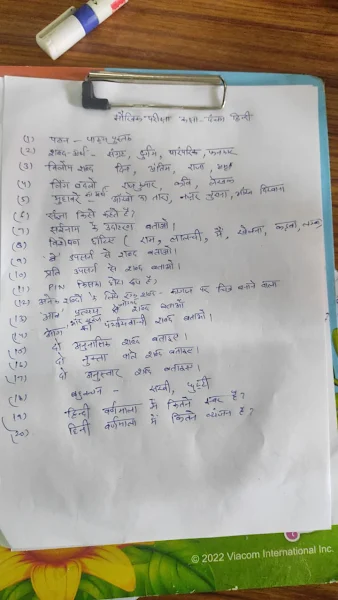 मौखिक परीक्षा कक्षा-पंचम हिन्दी
(1) पठन - पाठ्य पुस्तक
(2) शब्द-अर्थ - संग्रह, दुर्गम, पारंपरिक,
(3) विलोम शब्द दिन, अंतिम, राजा,
(4) लिंग बदलो राजकुमार, कवि, लेखक
(5) मुहावरे का अर्थ आँखों का तारा,
(6) संज्ञा किसे कहते हैं?
(7) सर्वनाम के उदाहरण बताओ।
(8) विशेषण छाँटिए ( राम, लालची, मैं, खेलना,
(9) उपसर्ग से शब्द बताओ।
(10) प्रति उपसर्ग से शब्द बताओ।
(11) PIN किसका होता है?
(12) अनेक शब्दों के लिए एक शब्द - कागज पर चित्र बनाने वाला
(13) प्रत्यय से शब्द बताओ
(14) का पर्यायवाची शब्द बताओ।
(15) दो अनुनासिक शब्द बताइए।
(16) दो नुक्ता वाले शब्द बताइए।
(17) दो अनुस्वार शब्द बताइए।
(18) बहुवचन -
(19) हिन्दी वर्णमाला में कितने स्वर हैं?
(20) हिन्दी वर्णमाला में कितने व्यंजन हैं?
© 2022 Viacom International Inc.